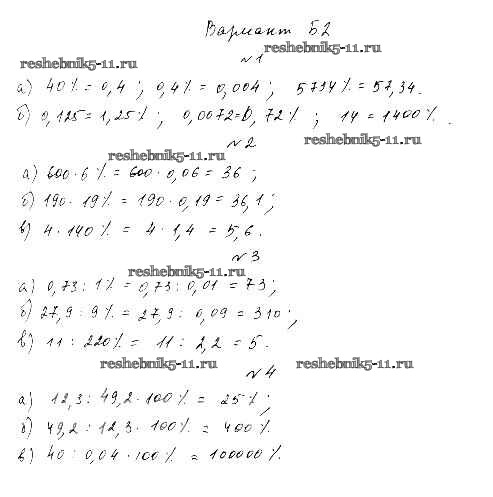 Вариант Б.2
reshebnik5-11.ru
№1
reshebnik5-11.ru
а) 40% = 0,4 ; 0,4% = 0,004 ; 5734% = 57,34.
б) 0,125 = 1,25% ; 0,0072 = 0,72% ; 14 = 1400% .
reshebnik5-11.ru
№2
reshebnik5-11.ru
а) 600 · 6% = 600 · 0,06 = 36 ;
б) 190 · 19% = 190 · 0,19 = 36,1 ;
в) 4 · 140% = 4 · 1,4 = 5,6 .
№3
reshebnik5-11.ru
а) 0,73 : 1% = 0,73 : 0,01 = 73 ;
б) 27,9 : 9% = 27,9 : 0,09 = 310 ;
в) 11 : 220% = 11 : 2,2 = 5 .
reshebnik5-11.ru reshebnik5-11.ru
№4
а) 12,3 : 49,2 · 100% = 25% ;
б) 49,2 : 12,3 · 100% = 400%
в) 40 : 0,04 · 100% = 100000%.